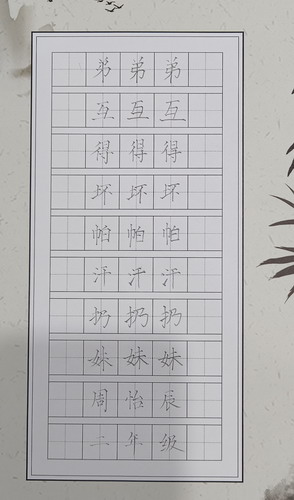 弟弟弟
互互互
得得得
坏坏坏
帕帕帕
汗汗汗
扔扔扔
妹妹妹
周怡辰
二年级